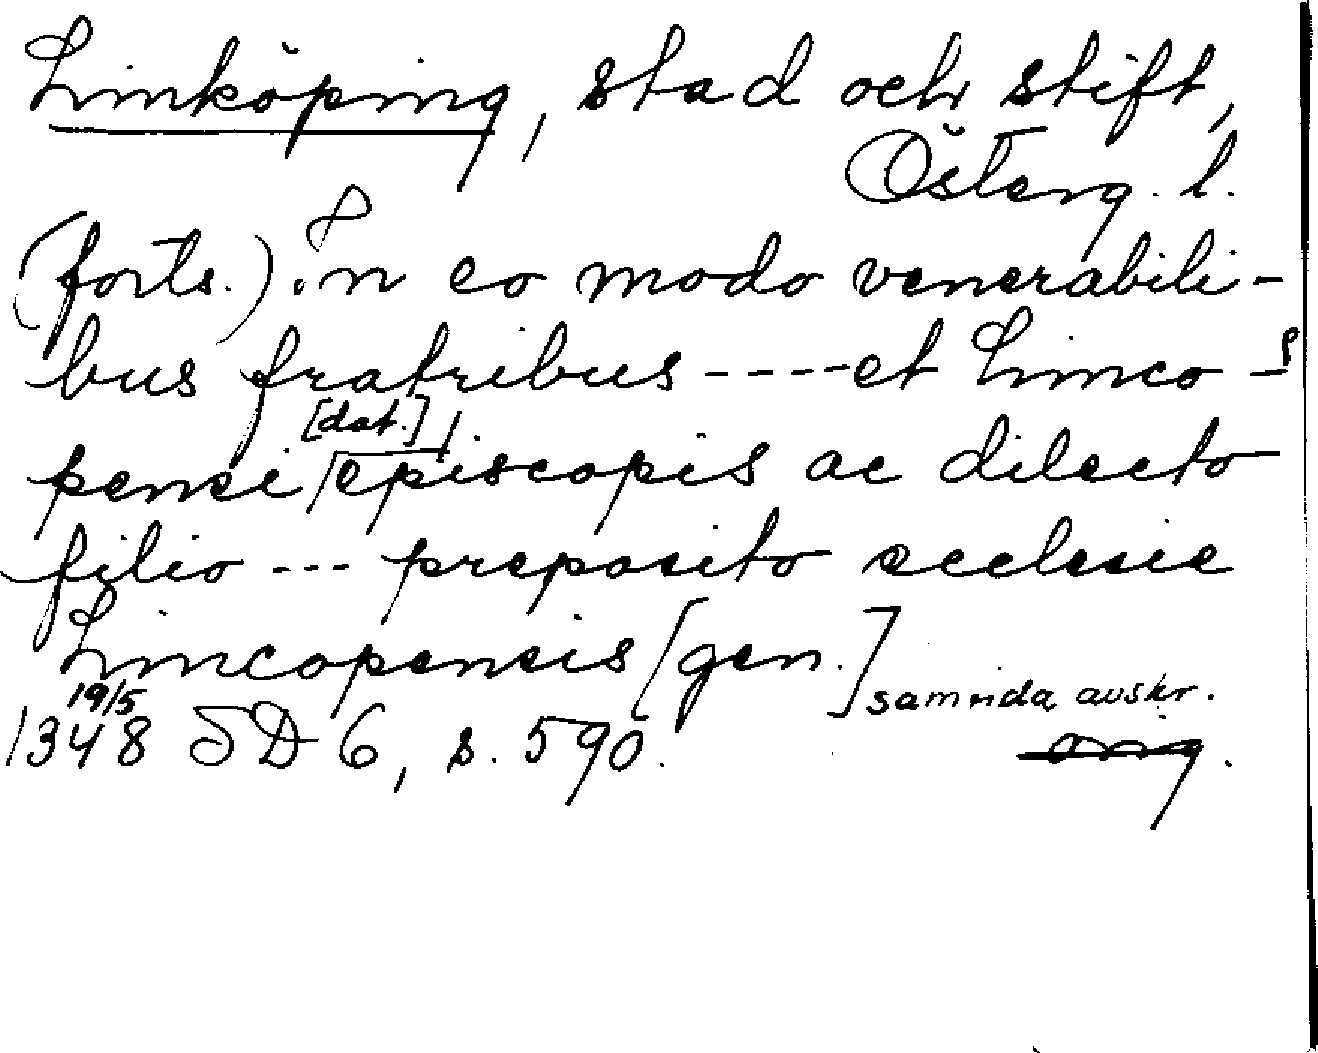 Linköping, stad och stift,
Österg. l.
(forts.). In eo modo venerabili-
bus fratribus ---- et Linco-
pensi [dat.] episcopis ac dilecto
filio --- preposito ecclesie
Lincopensis [gen.]
19/5 samtida avskr.
1348 SD 6, s. 590. orig.